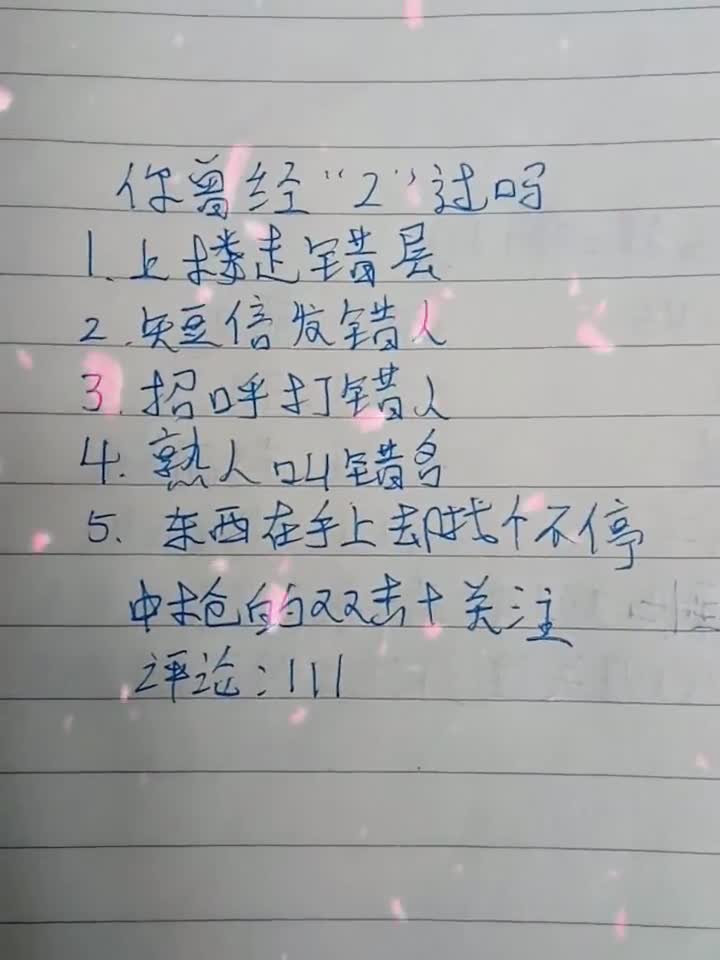 你曾经“2”过吗
1.上楼走错层
2.短信发错人
3.招呼打错人
4.熟人叫错名
5.东西在手上却找个不停
中枪的双击+关注
评论:111